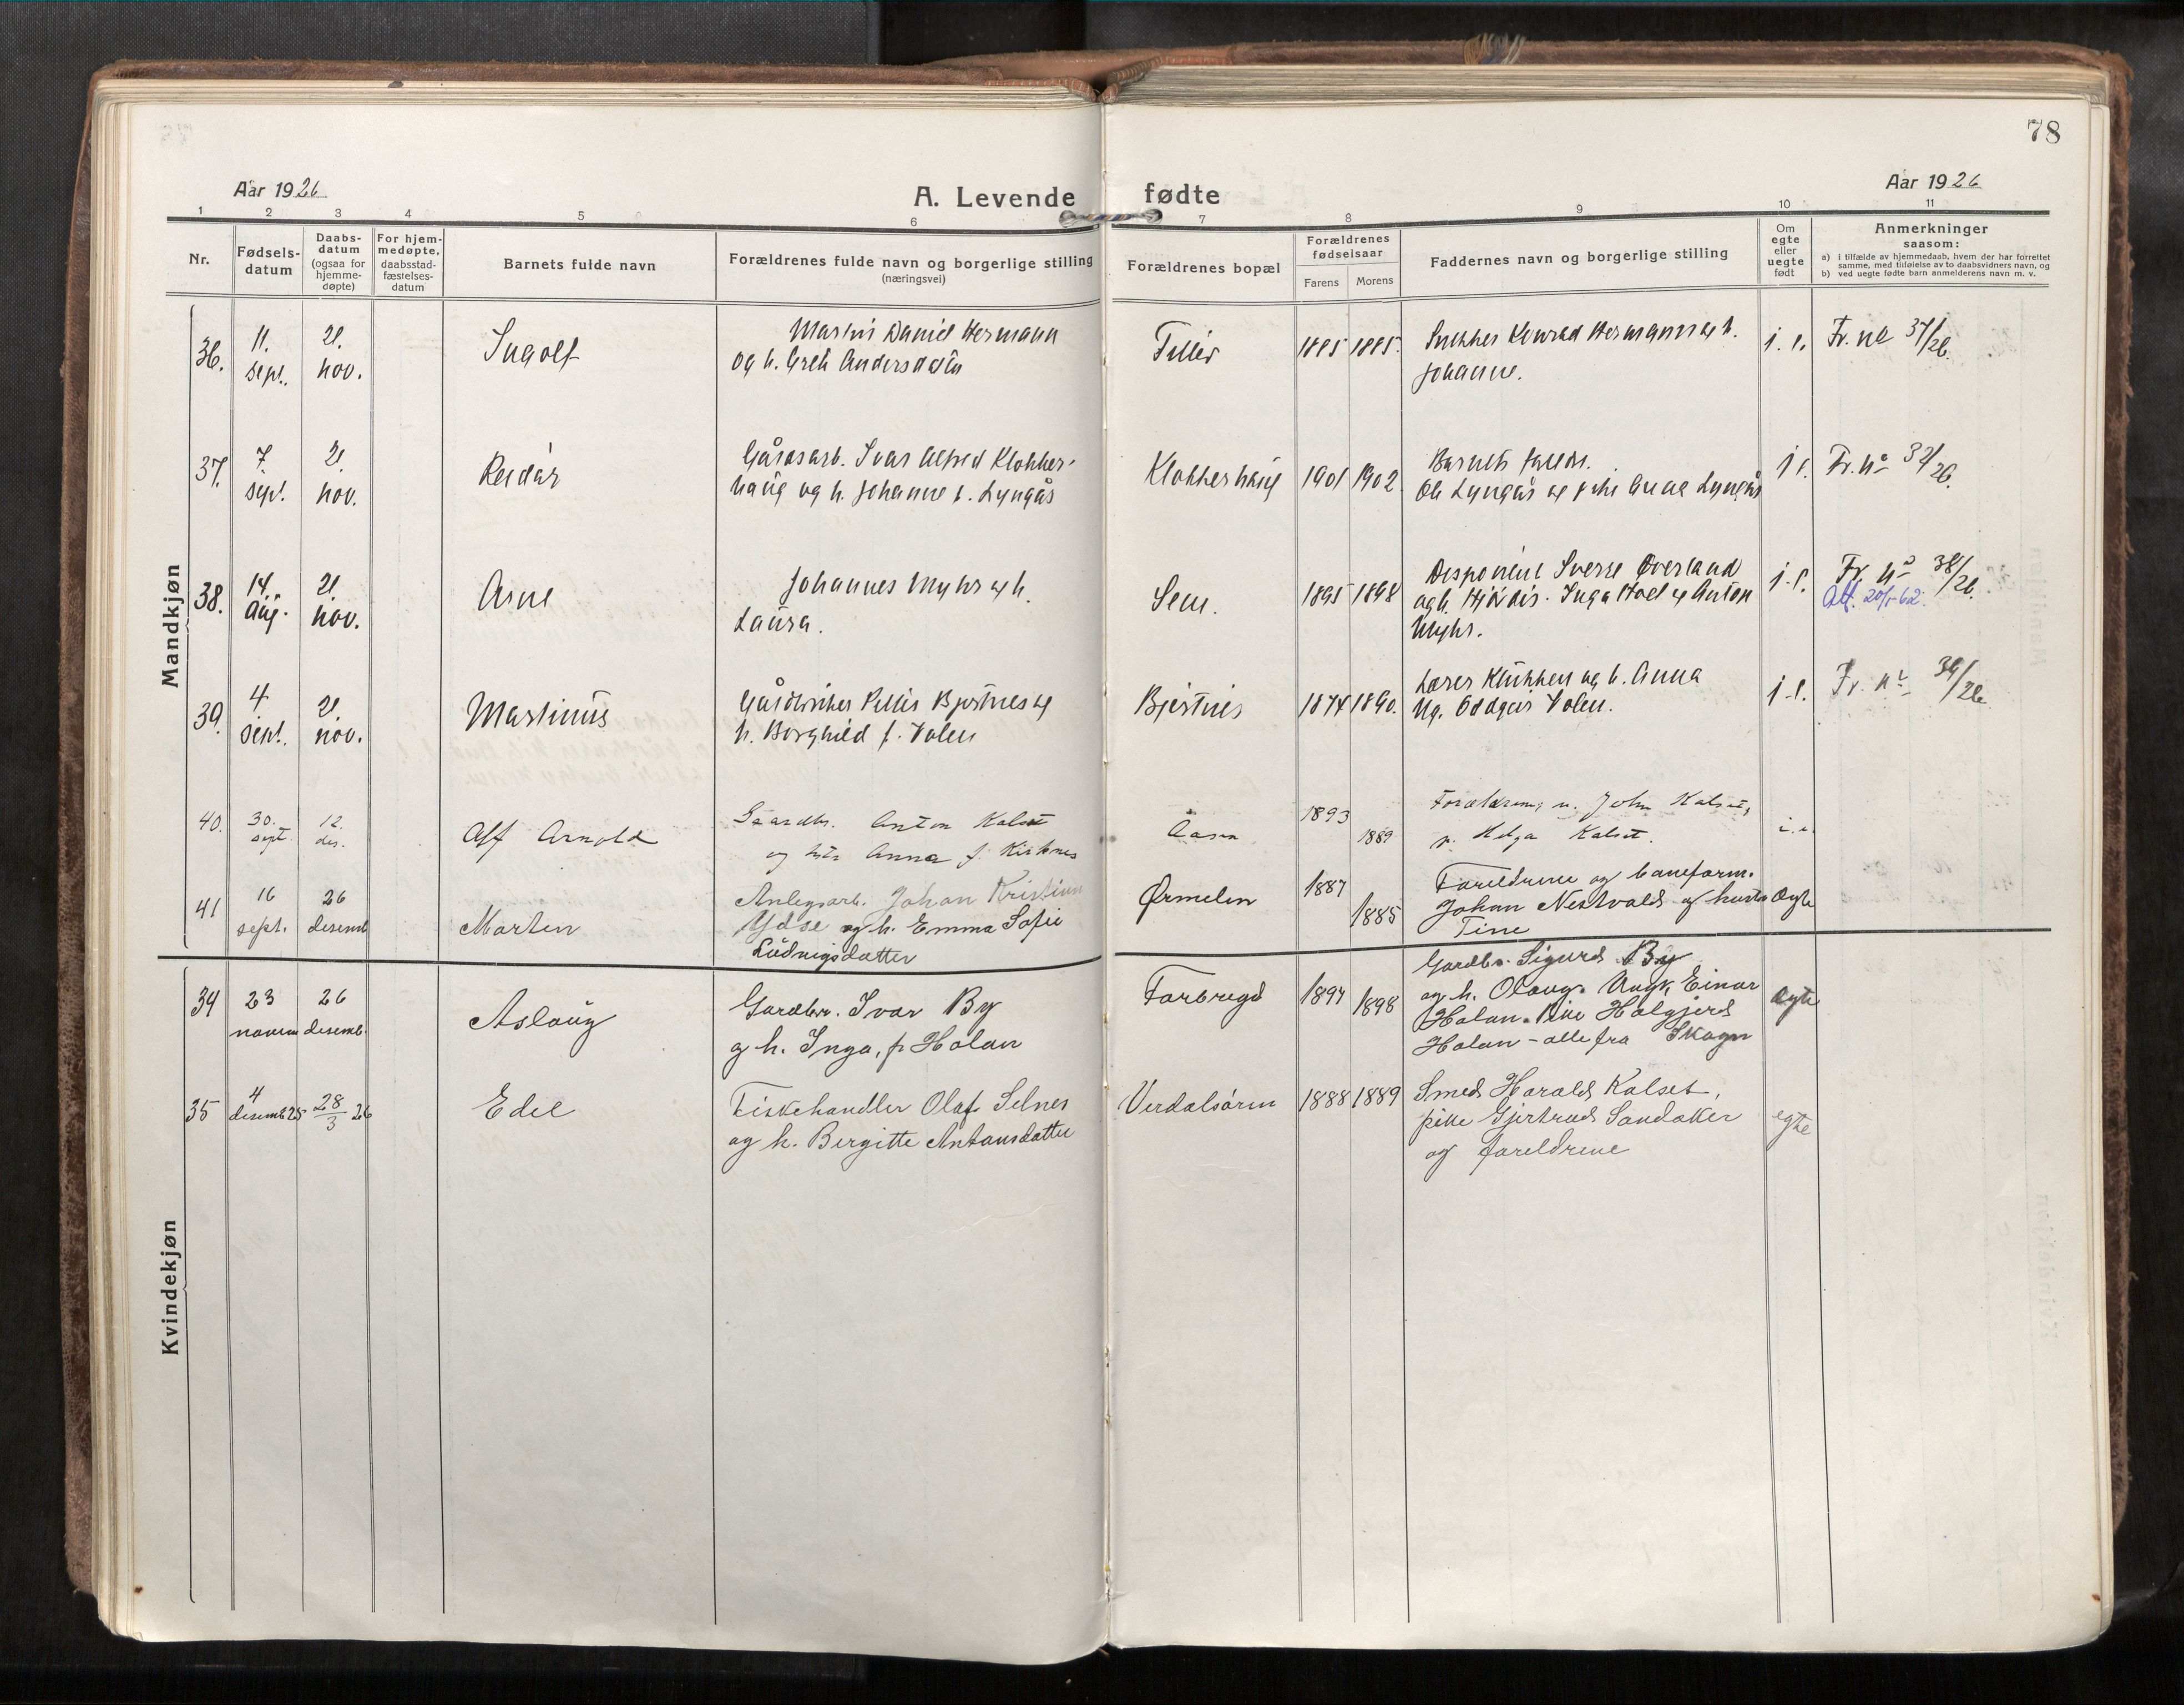 78
Aar 1926
A. Levende fødte
Aar 1926
1 2 3 4 5 6 7 8 9 10 11
Nr.
Fødsels-
datum
Daabs-
datum
(ogsaa for
hjemme-
døpte)
For hjem-
medøpte,
daabsstad-
fæstelses-
datum
Barnets fulde navn
Forældrenes fulde navn og borgerlige stilling
(næringsvei)
Forældrenes bopæl
Forældrenes
fødselsaar
Farens Morens
Faddernes navn og borgerlige stilling
Om
egte
eller
uegte
født
Anmerkninger
saasom:
a) i tilfælde av hjemmedaab, hvem der har forrettet
samme, med tilføielse av to daabsvidners navn, og
b) ved uegte fødte barn anmelderens navn m. v.
Mandkjøn
36. 11. sept. 21. nov. Ingolf
Martin Daniel Hermann
og h. Greth Andersdatter
Tiller 1885 1885.
Snekker Konrad Hermann og h.
Johanne.
Fr. no 37/26.
37. 7 sept. 21. nov. Reidar
Gårdsarb. Ivar Alfred Klokker-
haug og h. Johanne f. Lyngås
Klokkerhaug 1901 1902.
Barnets foreldr.
Ole Lyngås og pike Anna Lyngås
Fr. no
38. 14. aug. 21. nov. Arne
Johannes Myhr og h.
Laura.
Sem. 1895 1898
Disponent Sverre Øverland
og h. Hjördis. Inga Hoel og Anton
Myhr.
Fr. no 38/26.
Att. 20/5-62.
39. 4 sept. 21. nov. Martinus
Gårdbruker Petter Bjertnes og
h. Borghild f. Volen
Bjertnes 1874 1890.
Lærer Klukken og h. Anna
Ug. Oddgeir Volen.
Fr. no 39/26.
40. 30. sept 12. des. Alf Arnold
Gaardbr. Anton Kalset
og h. Anna f. Kirknes
Aasen 1893 1889
Forældrene, u. John Kalset,
p. Helga Kalset.
41 16 sept. 26 desemb Morten
Anlegsarb. Johan Kristian
Ydse og h. Emma Sofie
Ludvigsdatter
Ørmelen 1887 1885
Foreldrene og baneform.
Johan Nestvold og hustru
Tine
Ægte
Kvindekjøn
34 23 novem 26 desemb. Aslaug
Gardbr. Ivar By
og h. Inga, f. Holan
Forbregd 1894 1898
Gardbr. Sigurd By
og h. Olaug. Ungk. Einar
Holan. Pike Holgjerd
Holan - alle fra Skogn
Ægte
35 4 desemb 25 28/3 26 Edel
Fiskehandler Olaf Selnes
og h. Birgitte Antonsdatter
Verdalsøren 1888 1889
Smed Harald Kalset,
pike Gjertrud Sandaker
og foreldrene
egte